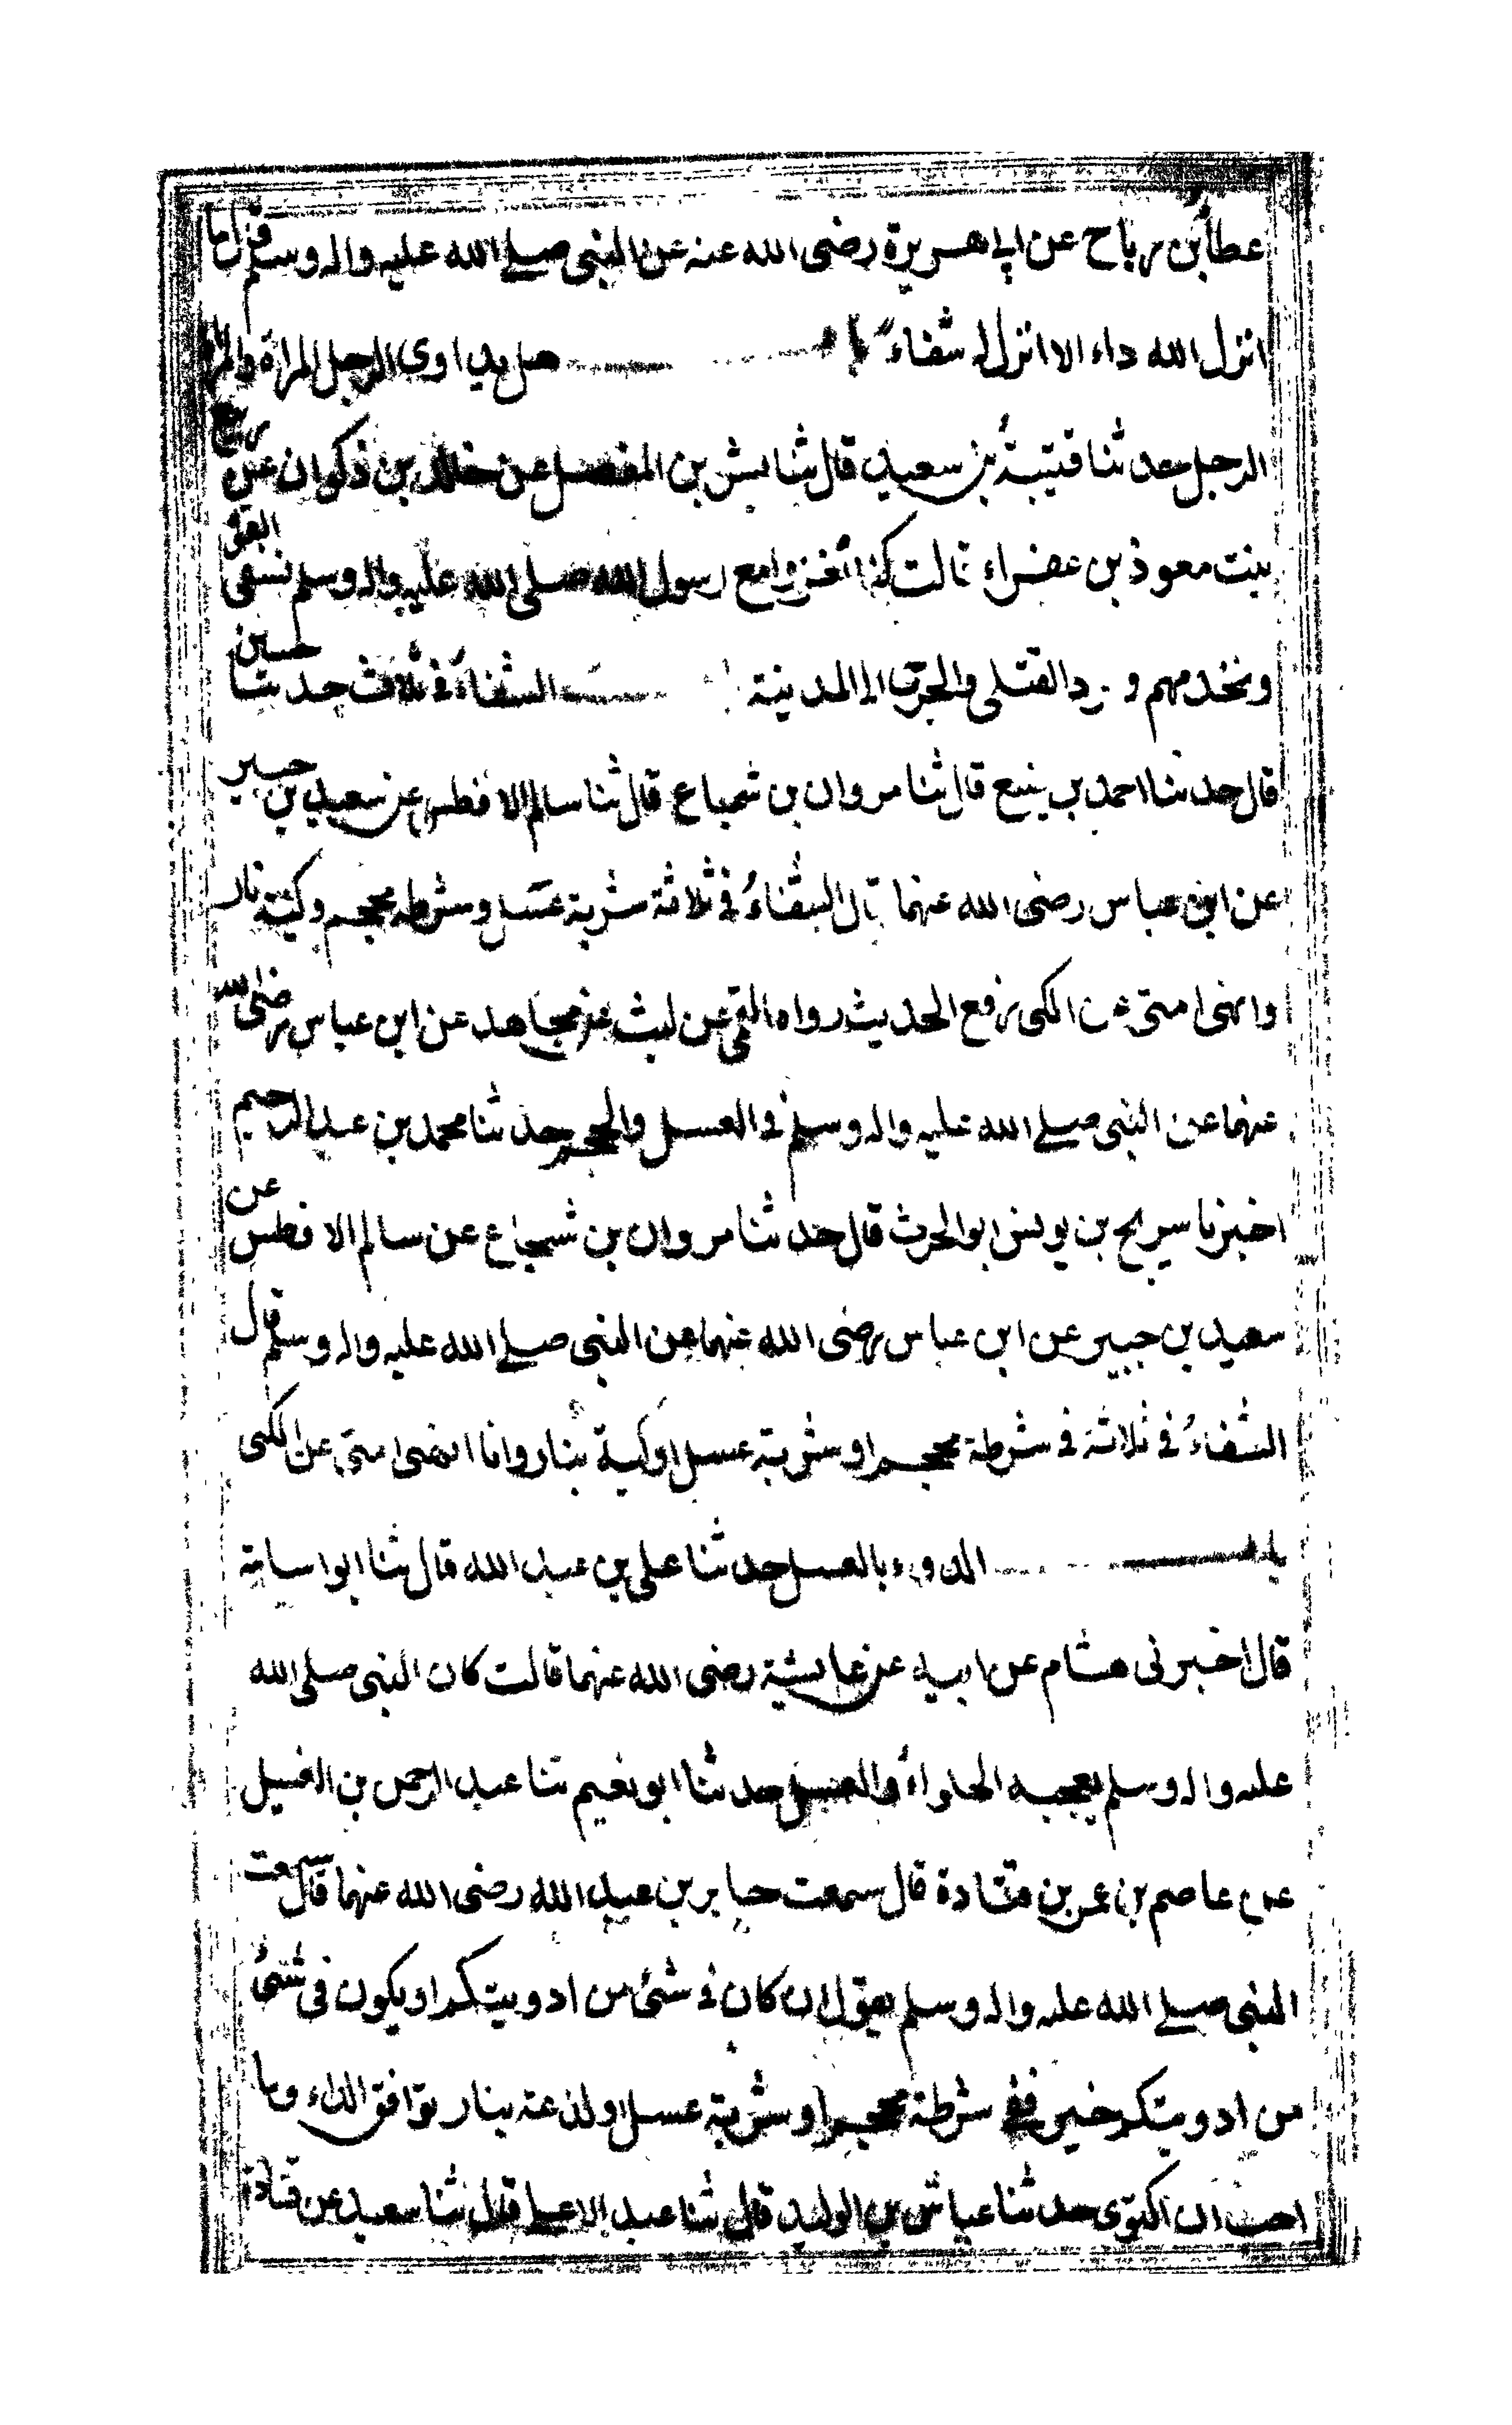 عطاء بن رباح عن ابي هريرة رضى الله عنه عن النبي صلى الله عليه واله وسلم قال ما
انزل الله داء الا انزل له شفاء باب هل يداوى الرجل المراة والمراة
الرجل حدثنا قتيبة بن سعيد قال ثنا بشر بن المفضل عن خالد بن ذكوان عن ربيع
بنت معوذ بن عفراء قالت كنا نغزوا مع رسول الله صلى الله عليه واله وسلم نسقى القوم
ونخدمهم و نرد القتلى والجرحى الى المدينة باب الشفاء فى ثلاث حدثنا حسين
قال حدثنا احمد بن منيع قال ثنا مروان بن شجاع قال ثنا سالم الافطس عن سعيد بن جبير
عن ابن عباس رضى الله عنهما قال الشفاء فى ثلاثة شربة عسل وشرطة محجم وكية نار
وانهى امتى عن الكى رفع الحديث رواه القمى عن ليث عن مجاهد عن ابن عباس رضى الله
عنهما عن النبي صلى الله عليه واله وسلم فى العسل والحجم حدثنا محمد بن عبد الرحيم
اخبرنا سريج بن يونس ابو الحرث قال حدثنا مروان بن شجاع عن سالم الافطس عن
سعيد بن جبير عن ابن عباس رضى الله عنهما عن النبي صلى الله عليه واله وسلم قال
الشفاء فى ثلاثة فى شرطة محجم او شربة عسل او كية بنار وانا انهى امتى عن الكى
باب الدواء بالعسل حدثنا على بن عبد الله قال ثنا ابو اسامة
قال اخبرنى هشام عن ابيه عن عايشة رضى الله عنهما قالت كان النبي صلى الله
عليه واله وسلم يعجبه الحلواء والعسل حدثنا ابو نعيم ثنا عبد الرحمن بن الغسيل
عن عاصم بن عمر بن قتادة قال سمعت جابر بن عبد الله رضى الله عنهما قال سمعت
النبي صلى الله عليه واله وسلم يقول ان كان فى شئ من ادويتكم او يكون فى شئ
من ادويتكم خير ففى شرطة محجم او شربة عسل او لذعة بنار توافق الداء وما
احب ان اكتوى حدثنا عياش بن الوليد قال ثنا عبد الاعلى قال ثنا سعيد عن قتادة